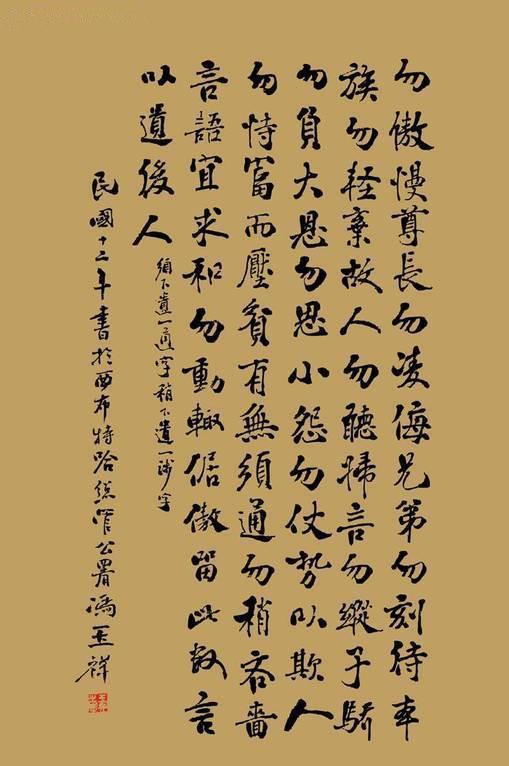 勿傲慢尊長勿凌侮兄第勿刻待本
族勿輕棄故人勿聽婦言勿縱子驕
勿負大恩勿思小怨勿仗勢以欺人
勿恃富而壓貧有無須通勿稍吝嗇
言語宜求和勿動輒倨傲留此數言
以遺後人
須下遺一字稍下遺一涉字
民國十二年書於西布特哈總管公署馮玉祥